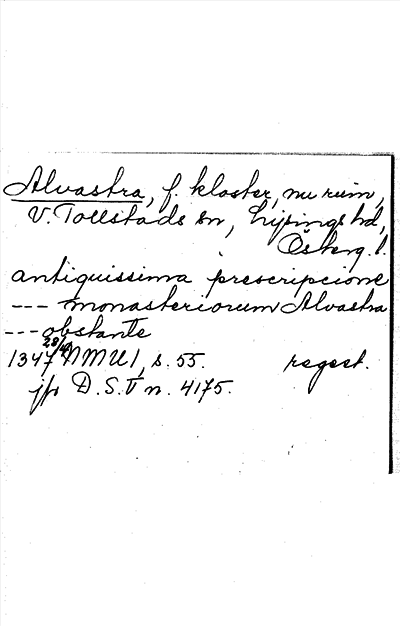 Alvastra, f. kloster, nu ruin,
V. Tollstads sn, Lysings hd,
Österg. l.
antiquissima prescripcione
--- monasteriorum Alvastra
--- obstante
1347 28/4 NMU I, s. 55. regest.
jfr D.S. V n. 4175.